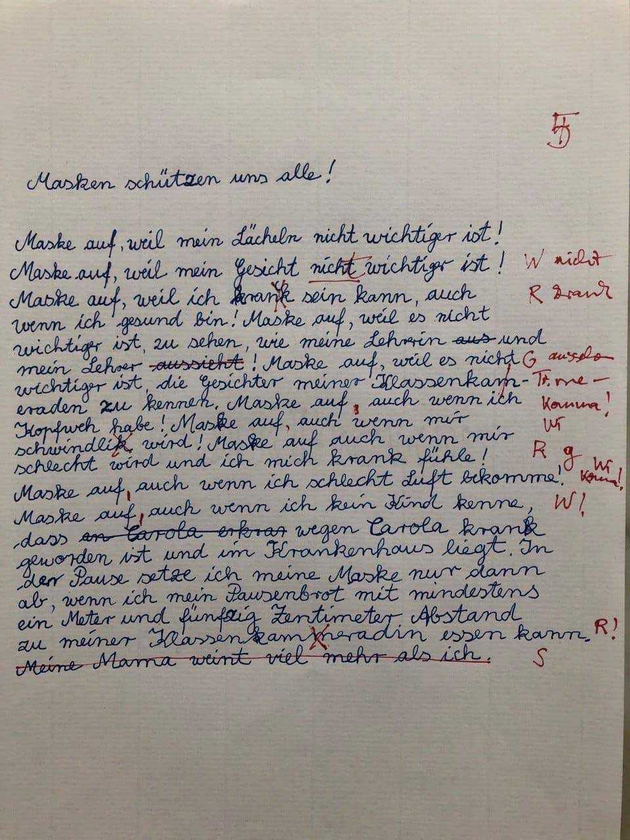 5
Masken schützen uns alle!
Maske auf, weil mein Lächeln nicht wichtiger ist!
Maske auf, weil mein Gesicht nicht wichtiger ist! W nicht
Maske auf, weil ich krank sein kann, auch R krank
wenn ich gesund bin! Maske auf, weil es nicht
wichtiger ist, zu sehen, wie meine Lehrerin aus und
mein Lehrer aussieht! Maske auf, weil es nicht G
wichtiger ist, die Gesichter meiner Klassenkam- Tr. me-
eraden zu kennen. Maske auf, auch wenn ich Komma!
Kopfweh habe! Maske auf, auch wenn mir W
schwindlik wird! Maske auf auch wenn mir R g
schlecht wird und ich mich krank fühle! W
Maske auf, auch wenn ich schlecht Luft bekomme! Komma!
Maske auf, auch wenn ich kein Kind kenne, W!
dass en Carola erkran wegen Carola krank
geworden ist und im Krankenhaus liegt. In
der Pause setze ich meine Maske nur dann
ab, wenn ich mein Pausenbrot mit mindestens
ein Meter und fünfzig Zentimeter Abstand
zu meiner Klassenkammeradin essen kann. R!
Meine Mama weint viel mehr als ich. S